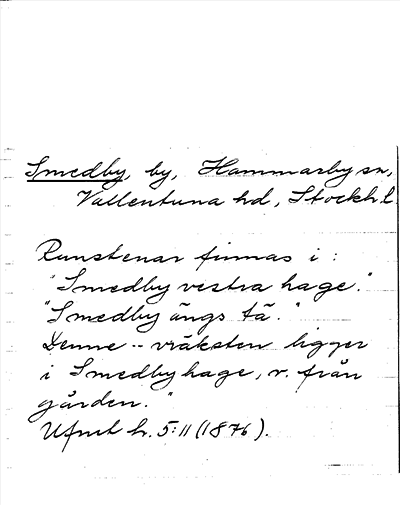 Smedby, by, Hammarby sn,
Vallentuna hd, Stockh. l.
Runstenar finnas i :
"Smedby vestra hage."
"Smedby ängs tä."
Denne -- vräksten ligger
i Smedby hage, v. från
gården."
Ufmt h. 5:11 (1876).